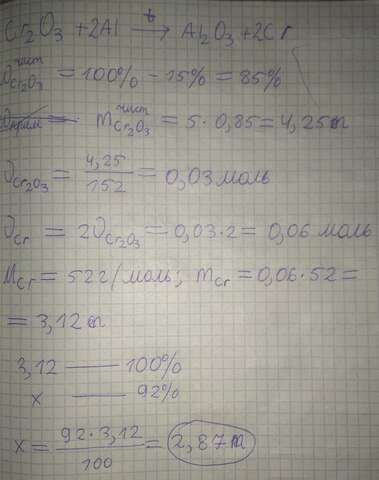 Cr₂O₃ + 2Al →ᵗ Al₂O₃ + 2Cr
ϑ чист Cr₂O₃ = 100% - 15% = 85%
m чист Cr₂O₃ = 5 · 0,85 = 4,25 т
ϑ Cr₂O₃ = 4,25 / 152 = 0,03 моль
ϑ Cr = 2ϑ Cr₂O₃ = 0,03 · 2 = 0,06 моль
M Cr = 52 г/моль; m Cr = 0,06 · 52 =
= 3,12 т
3,12 — 100%
x — 92%
x = 92 · 3,12 / 100 = 2,87 т